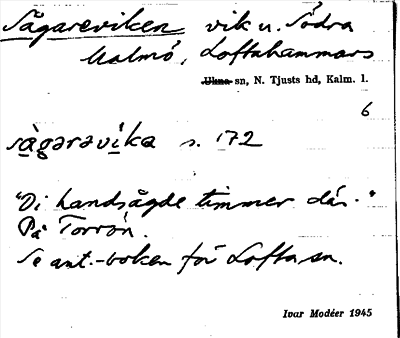 Sågareviken vik u. Södra
Malmö, Loftahammars
Ukna sn, N. Tjusts hd, Kalm. l.
6
sàgaravíka s. 172
"Di handsågde timmer där."
På Torrön.
Se ant.-boken för Lofta sn.
Ivar Modéer 1945